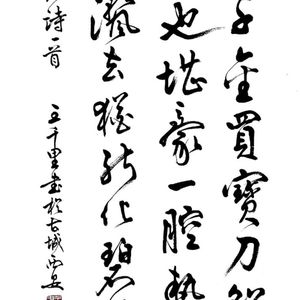 千金買寶刀
也堪豪一腔熱
灑去猶能化碧
詩一首 王千里書於古城西安